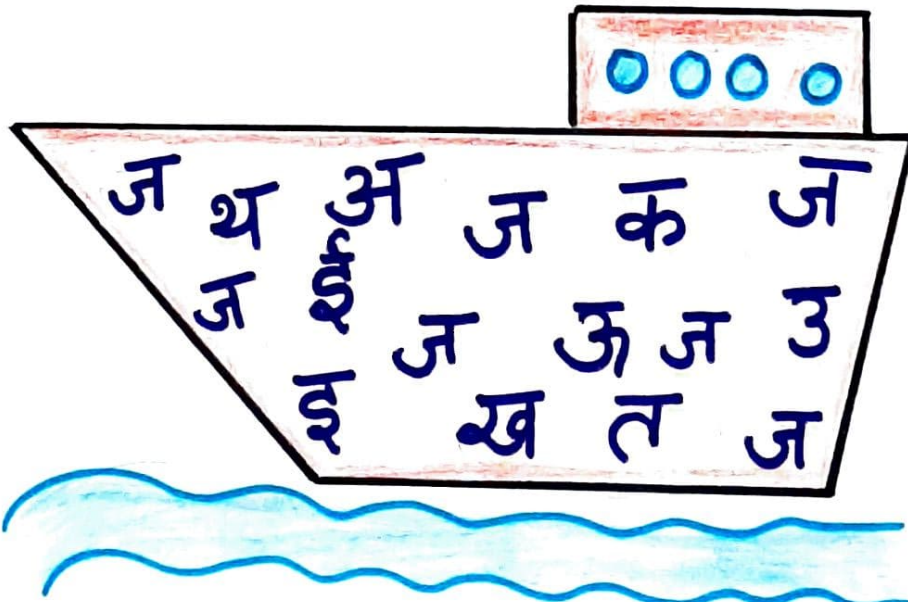 ज थ अ ज क ज
ज ई ज ऊ ज उ
इ ख त ज